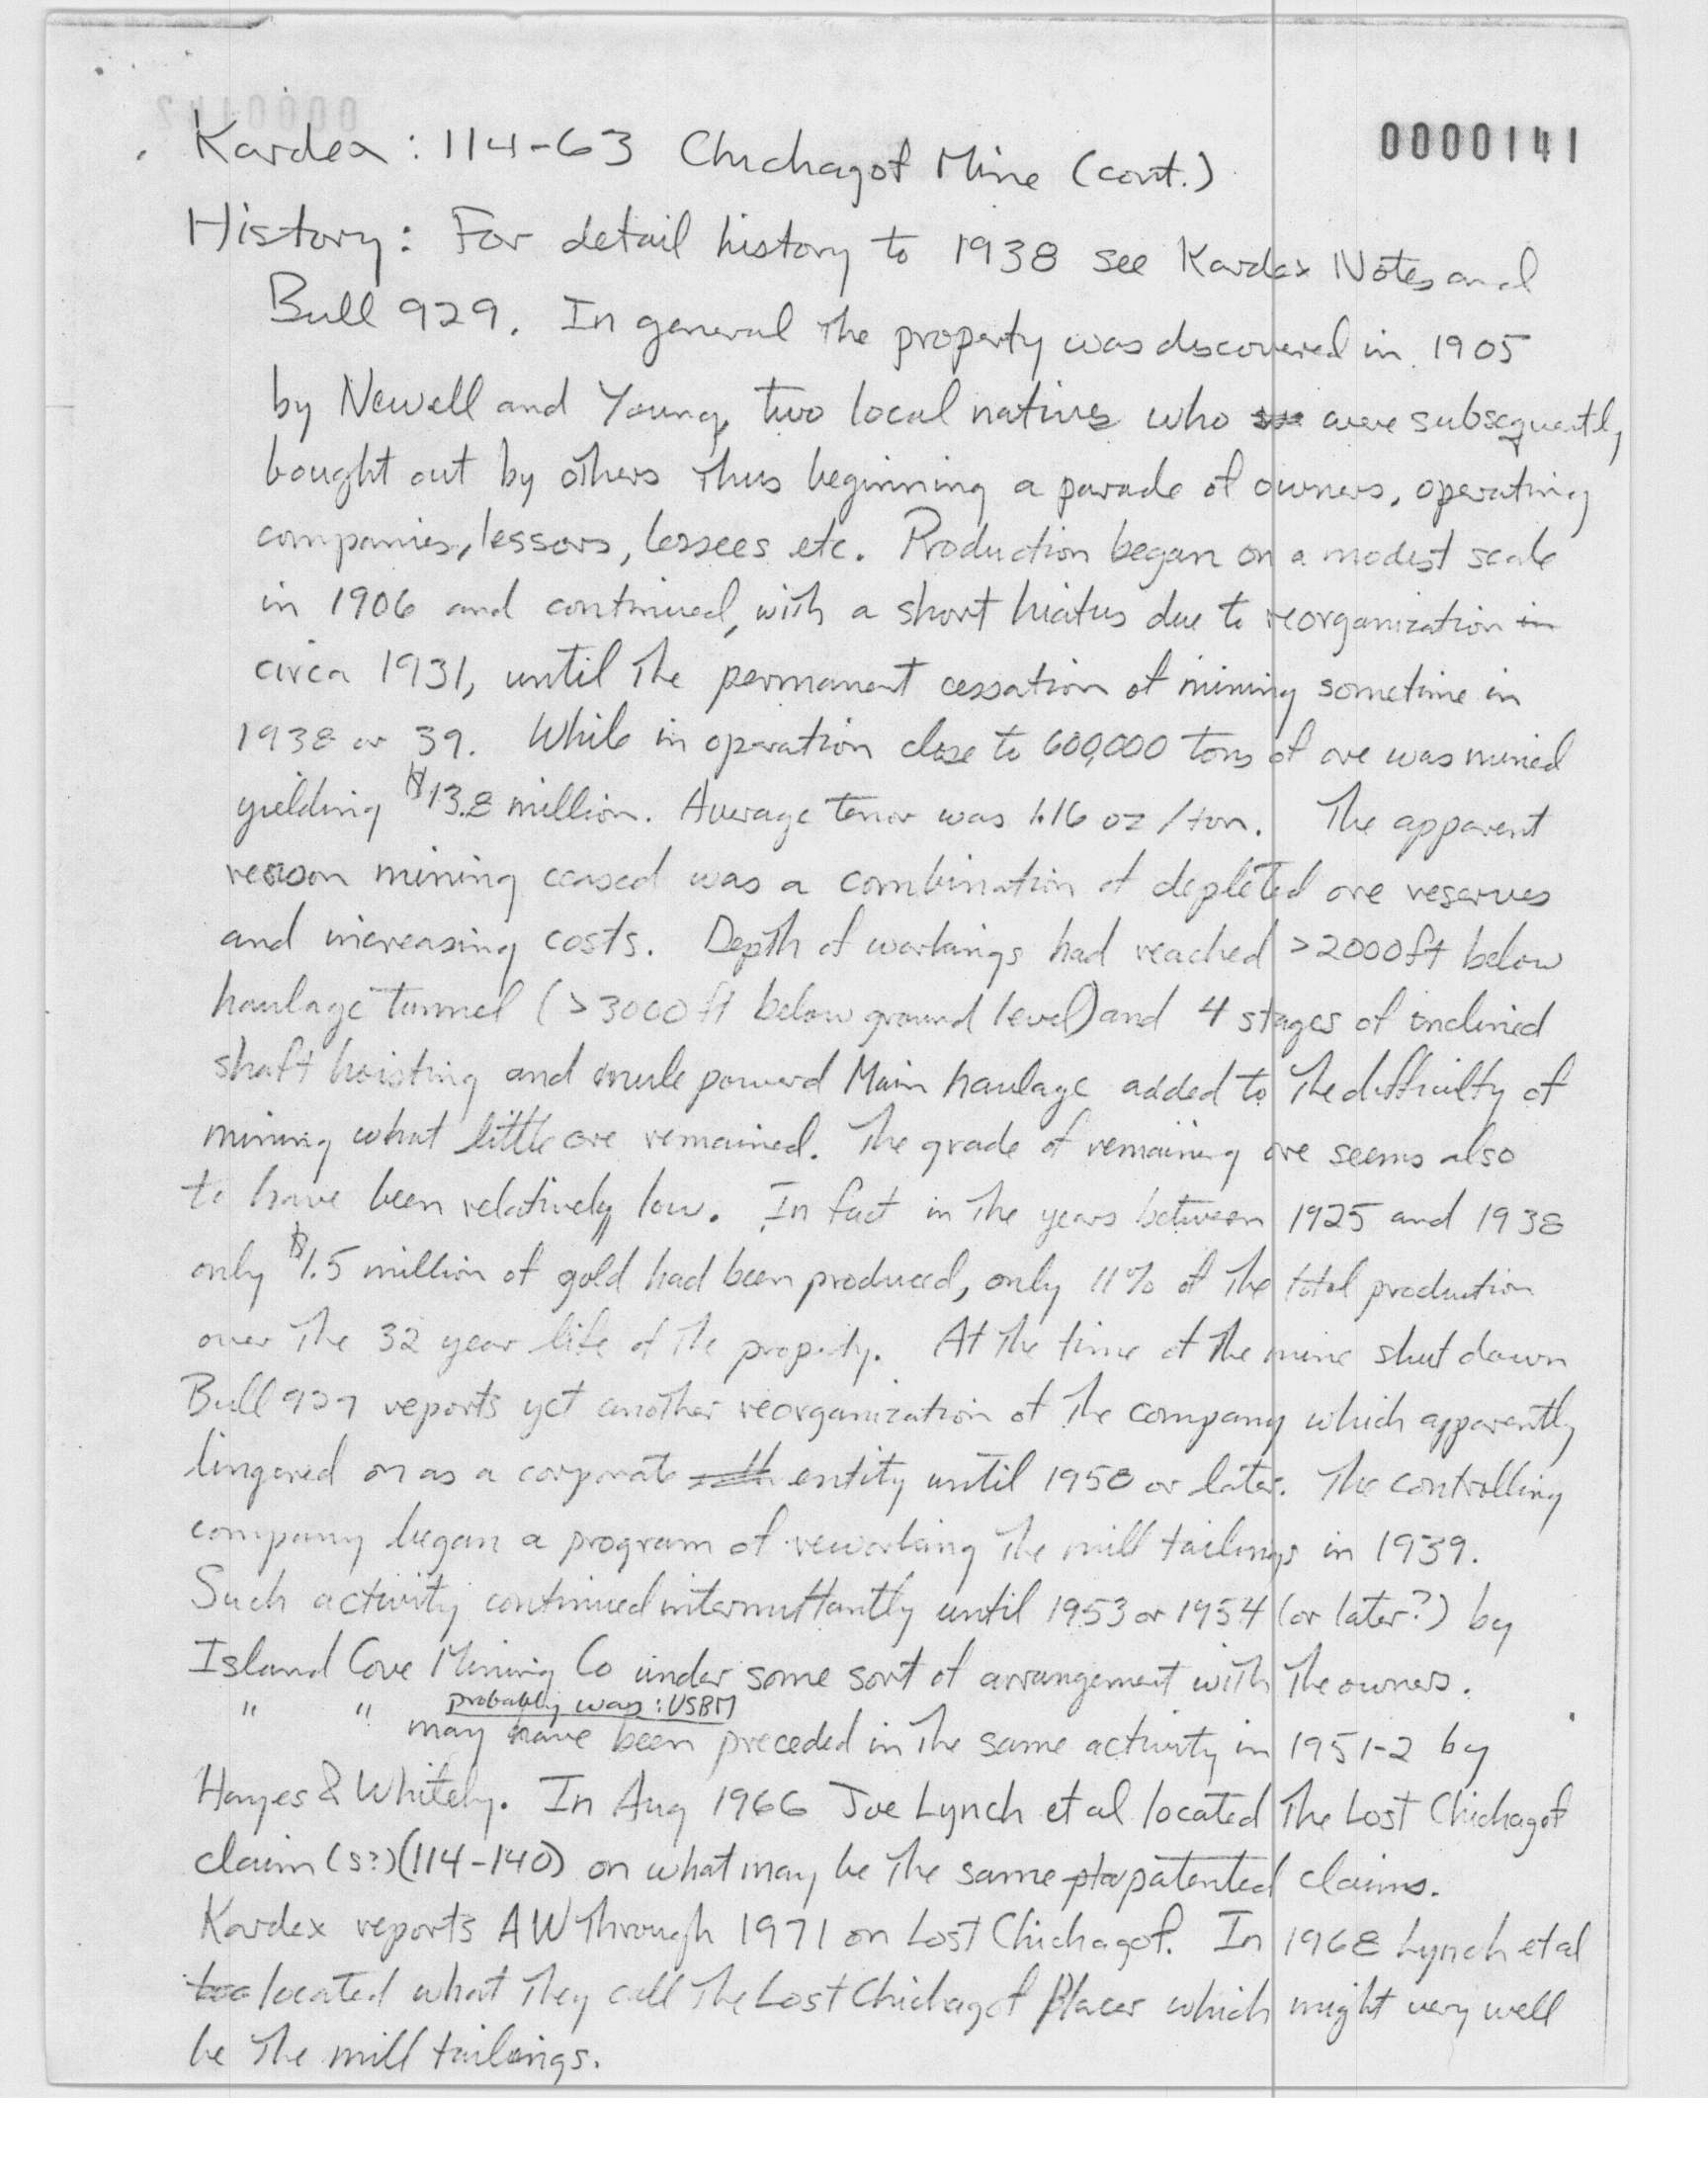 0000141
Kardex: 114-63 Chichagof Mine (cont.)
History: For detail history to 1938 see Kardex Notes and
Bull 929. In general the property was discovered in 1905
by Newell and Young, two local natives who were subsequently
bought out by others thus beginning a parade of owners, operating
companies, lessors, lessees etc. Production began on a modest scale
in 1906 and continued, with a short hiatus due to reorganization in
circa 1931, until the permanent cessation of mining sometime in
1938 or 39. While in operation close to 600,000 tons of ore was mined
yielding $13.8 million. Average tenor was 1.16 oz/ton. The apparent
reason mining ceased was a combination of depleted ore reserves
and increasing costs. Depth of workings had reached >2000ft below
haulage tunnel (>3000 ft below ground level) and 4 stages of inclined
shaft hoisting and mule powered Main haulage added to the difficulty of
mining what little ore remained. The grade of remaining ore seems also
to have been relatively low. In fact in the years between 1925 and 1938
only $1.5 million of gold had been produced, only 11% of the total production
over the 32 year life of the property. At the time of the mine shut down
Bull 929 reports yet another reorganization of the company which apparently
lingered on as a corporate entity until 1958 or later. The controlling
company began a program of reworking the mill tailings in 1939.
Such activity continued intermittantly until 1953 or 1954 (or later?) by
Island Cove Mining Co under some sort of arrangement with the owners.
probably was: USBM
" " may have been preceded in the same activity in 1951-2 by
Hayes & Whitely. In Aug 1966 Joe Lynch et al located the Lost Chichagof
claim(s?)(114-140) on what may be the same patented claims.
Kardex reports AW through 1971 on Lost Chichagof. In 1968 Lynch et al
located what they call the Lost Chichagof Placer which might very well
be the mill tailings.